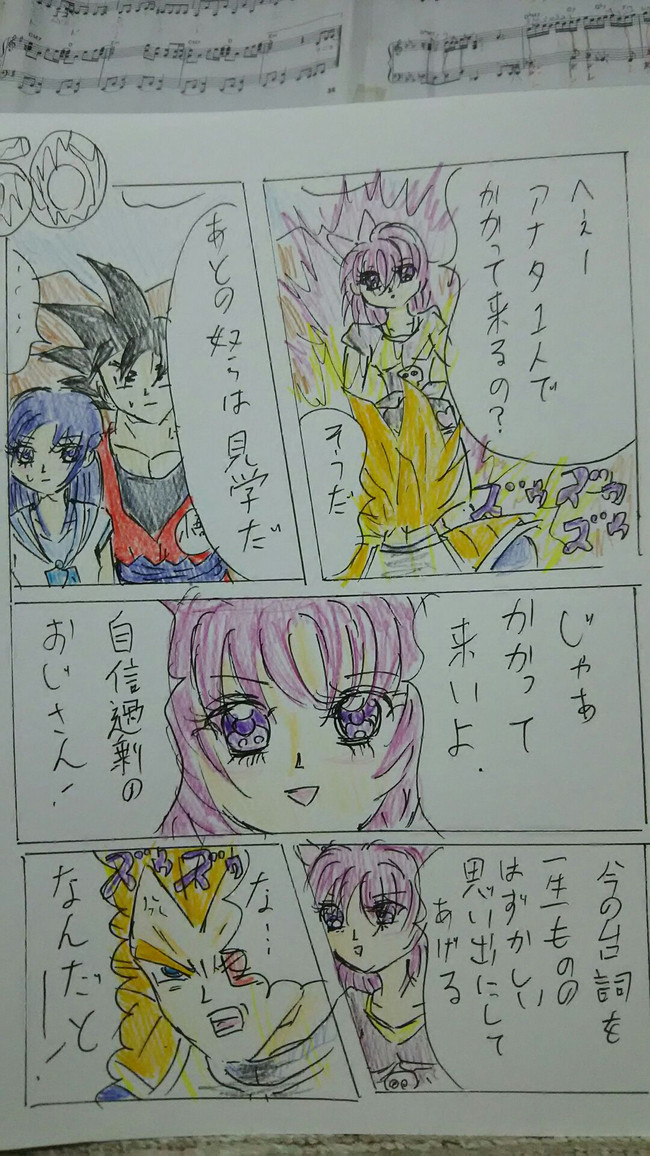 へぇー
アナタ1人で
かかって来るの？
そうだ
ズゥズゥ
ズゥ
50
あとの奴らは見学だ
悟
じゃあ
かかって
来いよ．
自信過剰の
おじさん！
今の台詞を
一生ものの
はずかしい
思い出にして
あげる
ズゥズゥ
な…
なんだとー！